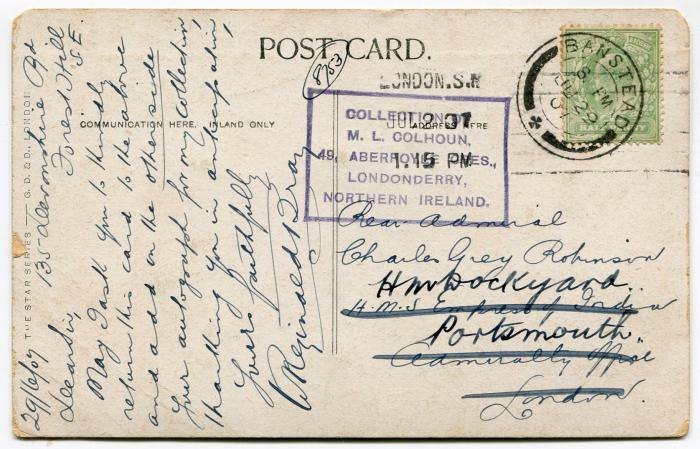 POST CARD.
8/53
COMMUNICATION HERE. INLAND ONLY
ADDRESS HERE
THE STAR SERIES — G. D. & D., LONDON.
135 Devonshire Rd
Forest Hill
S.E.
29/6/07
Dear Sir,
May I ask you to kindly
return this card to the above
and add on the other side
your autograph for my collection,
thanking you in anticipation,
Yours faithfully
Reginald Bray
LONDON. S.W
JUL 2 07
1.15 PM
COLLECTION OF
M. L. COLHOUN,
49, ABERFOYLE CRES.,
LONDONDERRY,
NORTHERN IRELAND.
BANSTEAD
PM
29
07
HALFPENNY
Rear Admiral
Charles Grey Robinson
HM Dockyard
H.M.S. Empress of India
Portsmouth.
Admiralty Office
London.